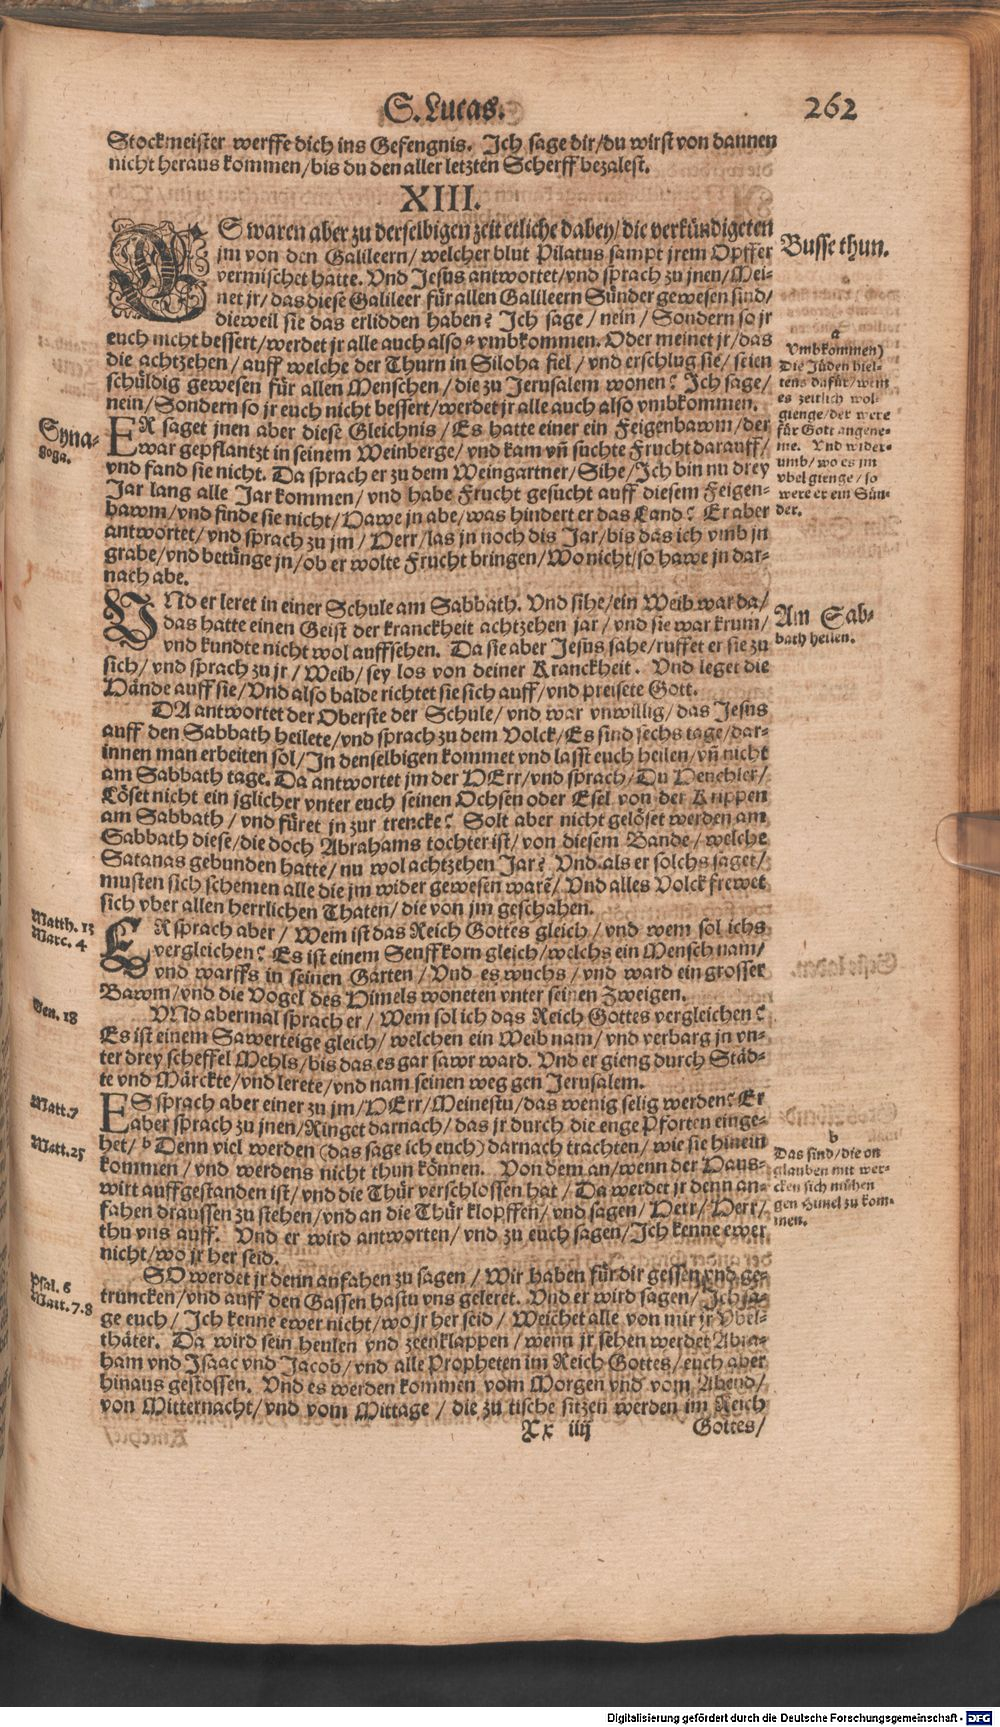 S. Lucas.
262
Stockmeister werffe dich ins Gefengnis. Ich sage dir/du wirst von dannen
nicht heraus kommen/bis du den aller letzten Scherff bezalest.
XIII.
ES waren aber zu derselbigen zeit etliche dabey/die verkündigeten
jm von den Galileern/welcher blut Pilatus sampt jrem Opffer
vermischet hatte. Vnd Jesus antwortet/vnd sprach zu jnen/Mei-
net jr/das diese Galileer für allen Galileern Sünder gewesen sind/
dieweil sie das erlidden haben? Ich sage/nein/Sondern so jr
euch nicht bessert/werdet jr alle auch also a vmbkommen. Oder meinet jr/das
die achtzehen/auff welche der Thurn in Siloha fiel/vnd erschlug sie/seien
schüldig gewesen für allen Menschen/die zu Jerusalem wonen? Ich sage/
nein/Sondern so jr euch nicht bessert/werdet jr alle auch also vmbkommen.
ER saget jnen aber diese Gleichnis/Es hatte einer ein Feigenbawm/der
war gepflantzt in seinem Weinberge/vnd kam vñ suchte Frucht darauff/
vnd fand sie nicht. Da sprach er zu dem Weingartner/Sihe/Ich bin nu drey
Jar lang alle Jar kommen/vnd habe Frucht gesucht auff diesem Feigen-
bawm/vnd finde sie nicht/Hawe jn abe/was hindert er das Land? Er aber
antwortet/vnd sprach zu jm/Herr/las jn noch dis Jar/bis das ich vmb jn
grabe/vnd betünge jn/ob er wolte Frucht bringen/Wo nicht/so hawe jn dar-
nach abe.
VNd er leret in einer Schule am Sabbath. Vnd sihe/ein Weib war da/
das hatte einen Geist der kranckheit achtzehen jar/vnd sie war krum/
vnd kundte nicht wol auffsehen. Da sie aber Jesus sahe/ruffet er sie zu
sich/vnd sprach zu jr/Weib/sey los von deiner Kranckheit. Vnd leget die
Hände auff sie/Vnd also balde richtet sie sich auff/vnd preisete Gott.
DA antwortet der Oberste der Schule/vnd war vnwillig/das Jesus
auff den Sabbath heilete/vnd sprach zu dem Volck/Es sind sechs tage/dar-
innen man erbeiten sol/In denselbigen kommet vnd lasst euch heilen/vñ nicht
am Sabbath tage. Da antwortet jm der HErr/vnd sprach/Du Heuchler/
Löset nicht ein jglicher vnter euch seinen Ochsen oder Esel von der Krippen
am Sabbath/vnd füret jn zur trencke? Solt aber nicht gelöset werden am
Sabbath diese/die doch Abrahams tochter ist/von diesem Bande/welche
Satanas gebunden hatte/nu wol achtzehen Jar? Vnd als er solchs saget/
musten sich schemen alle die jm wider gewesen warẽ/Vnd alles Volck frewet
sich vber allen herrlichen Thaten/die von jm geschahen.
ER sprach aber/Wem ist das Reich Gottes gleich/vnd wem sol ichs
vergleichen? Es ist einem Senffkorn gleich/welchs ein Mensch nam/
vnd warffs in seinen Garten/Vnd es wuchs/vnd ward ein grosser
Bawm/vnd die Vogel des Himels woneten vnter seinen Zweigen.
VNd abermal sprach er/Wem sol ich das Reich Gottes vergleichen?
Es ist einem Sawerteige gleich/welchen ein Weib nam/vnd verbarg jn vn-
ter drey scheffel Mehls/bis das es gar sawr ward. Vnd er gieng durch Städ-
te vnd Märckte/vnd lerete/vnd nam seinen weg gen Jerusalem.
ES sprach aber einer zu jm/HErr/Meinestu/das wenig selig werden? Er
aber sprach zu jnen/Ringet darnach/das jr durch die enge Pforten einge-
het/b Denn viel werden (das sage ich euch) darnach trachten/wie sie hinein
kommen/vnd werdens nicht thun können. Von dem an/wenn der Haus-
wirt auffgestanden ist/vnd die Thür verschlossen hat/Da werdet jr denn an-
fahen draussen zu stehen/vnd an die Thür klopffen/vnd sagen/Herr/Herr/
thu vns auff. Vnd er wird antworten/vnd zu euch sagen/Ich kenne ewer
nicht/wo jr her seid.
SO werdet jr denn anfahen zu sagen/Wir haben für dir gessen vnd ge-
truncken/vnd auff den Gassen hastu vns geleret. Vnd er wird sagen/Ich sa-
ge euch/Ich kenne ewer nicht/wo jr her seid/Weichet alle von mir jr Vbel-
thäter. Da wird sein heulen vnd zeenklappen/wenn jr sehen werdet Abra-
ham vnd Isaac vnd Jacob/vnd alle Propheten im Reich Gottes/euch aber
hinaus gestossen. Vnd es werden kommen vom Morgen vnd vom Abend/
von Mitternacht/vnd vom Mittage/die zu tische sitzen werden im Reich
Xx iiij
Gottes/
Busse thun.
a
Vmbkommen)
Die Jüden hiel-
tens dafür/wem
es zeitlich wol
gienge/der were
für Gott angene-
me. Vnd wider-
umb/wo es jm
vbel gienge/so
were er ein Sün-
der.
Am Sab-
bath heilen.
b
Das sind/die on
glauben mit wer-
cken sich mühen
gen Himel zu kom-
men.
Syna-
goga.
Matth. 13
Marc. 4
Gen. 18
Matt. 7
Matt. 25
Psal. 6
Matt. 7. 8
Digitalisierung gefördert durch die Deutsche Forschungsgemeinschaft - DFG